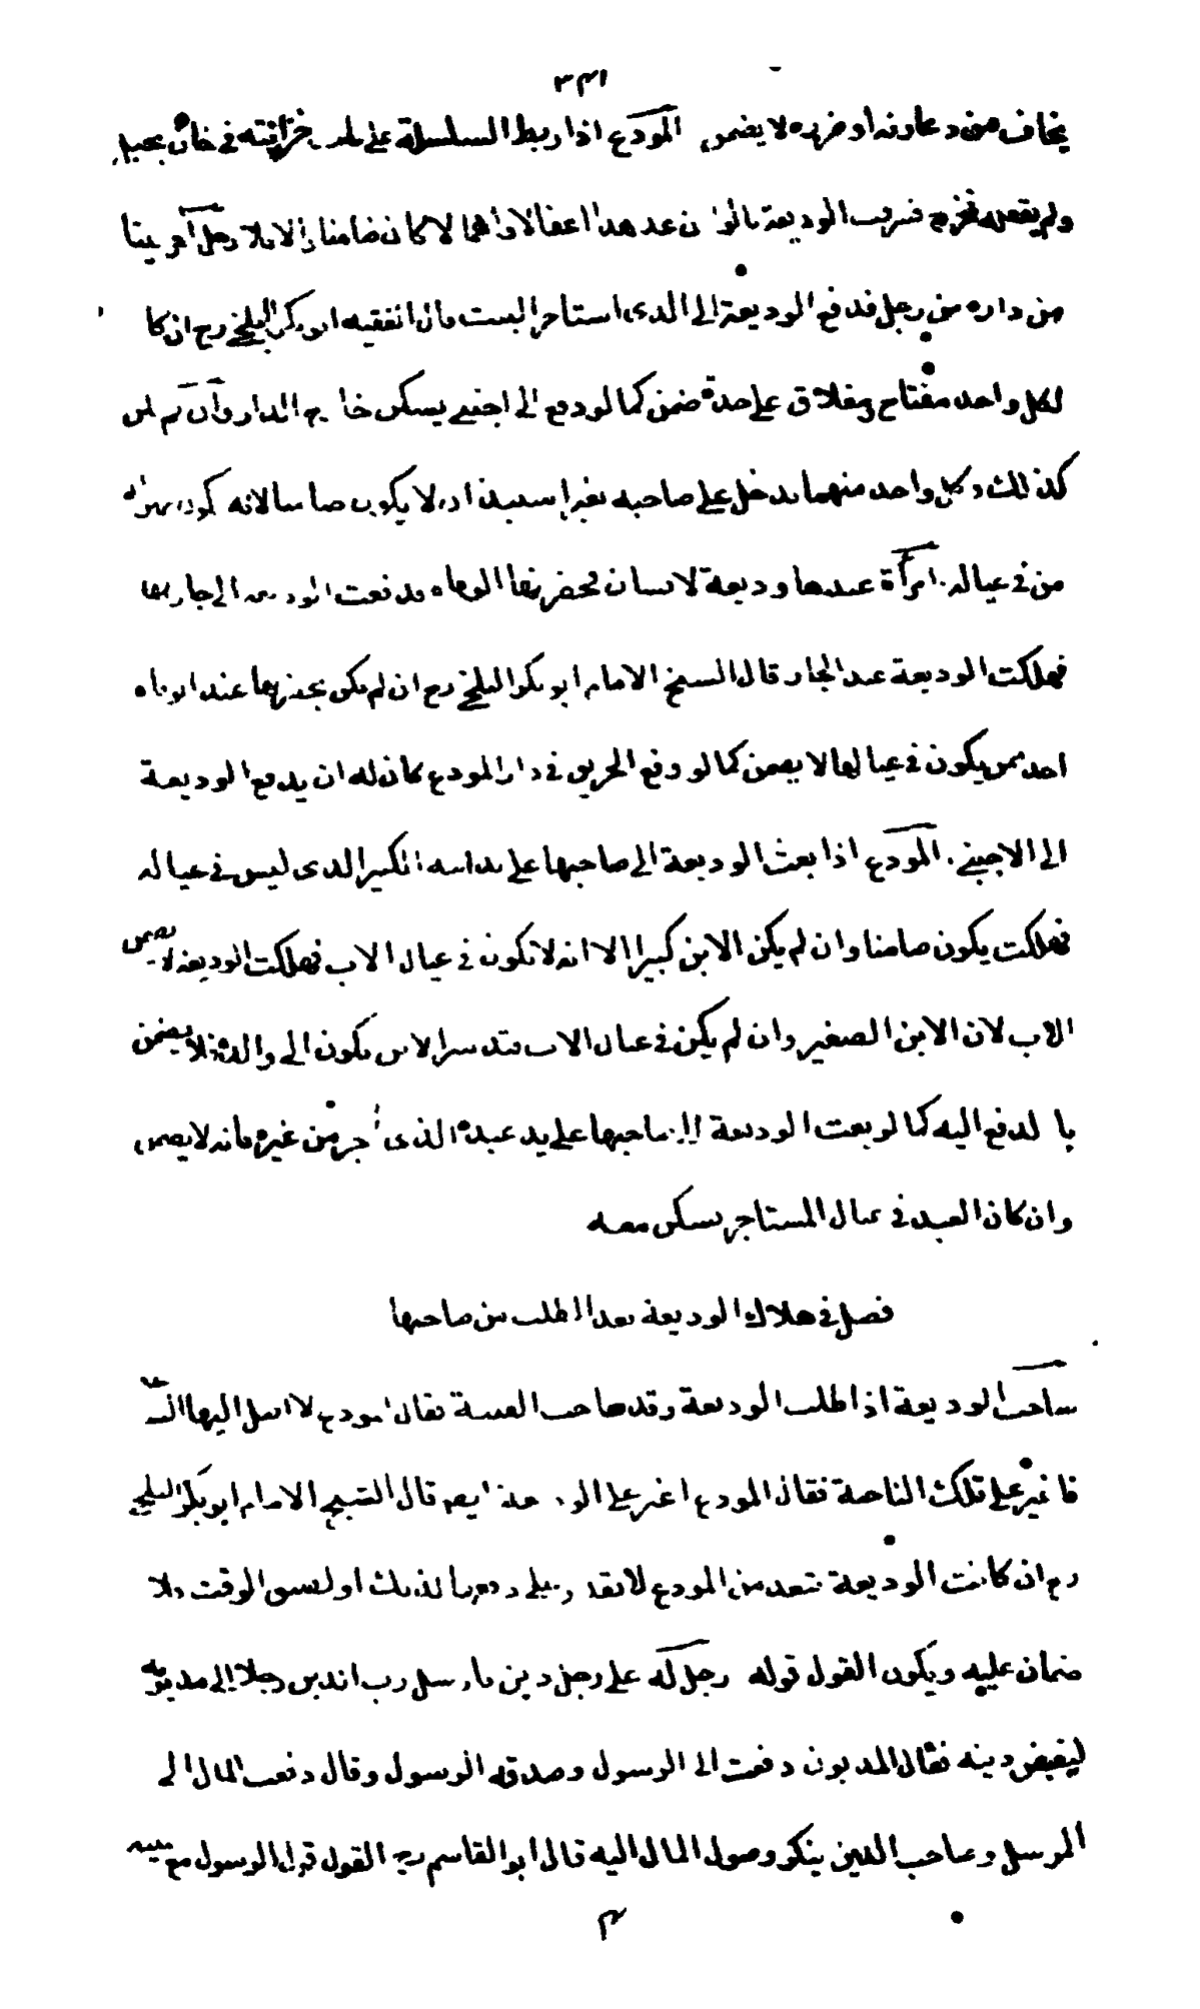 ٣٤١
يخاف من دعارته او ضربه لا يضمن المودع اذا ربط السلسلة على باب خزانته في خان بحبل
ولم يقفله فخرج فسرقت الوديعة قالوا ان عد هذا اغفالا واهمالا كان ضامنا والا فلا رجل آجر بيتا
من داره من رجل فدفع الوديعة الى الذى استاجر البيت قال الفقيه ابو بكر البلخي رح ان كا
لكل واحد مفتاح وغلاق على حدة ضمن كما لو دفع الى اجنبي يسكن خارج الدار وان لم يكن
كذلك وكل واحد منهما يدخل على صاحبه بغير استيذان لا يكون ضامنا لانه يكون بمنزلة
من في عياله امرأة عندها وديعة لانسان فحضرتها الوفاة فدفعت الوديعة الى جار لها
فهلكت الوديعة عند الجار قال الشيخ الامام ابو بكر البلخي رح ان لم يكن بحضرتها عند الوفاة
احد ممن يكون في عيالها لا يضمن كما لو وقع الحريق في دار المودع كان له ان يدفع الوديعة
الى الاجنبي المودع اذا بعث الوديعة الى صاحبها على يد ابنه الكبير الذى ليس في عياله
فهلكت يكون ضامنا وان لم يكن الابن كبيرا الا انه لا يكون في عيال الاب فهلكت الوديعة لا يضمن
الاب لان الابن الصغير وان لم يكن في عيال الاب فتدبير الابن يكون الى والده فلا يضمن
بالدفع اليه كما لو بعث الوديعة الى صاحبها على يد عبده الذى آجر من غيره فانه لا يضمن
وان كان العبد في عيال المستاجر يسكن معه
فصل في هلاك الوديعة بعد الطلب من صاحبها
صاحب الوديعة اذا طلب الوديعة وقد هاجت الفتنة فقال المودع لا اصل اليها الساعة
فاغير على تلك الناحية فقال المودع اغير على الوديعة ايضا قال الشيخ الامام ابو بكر البلخي
رح ان كانت الوديعة تبعد من المودع لا يقدر على دفعها لذلك او لضيق الوقت فلا
ضمان عليه ويكون القول قوله رجل له على رجل دين فارسل رب الدين رجلا الى مديونه
ليقبض دينه فقال المديون دفعت الى الرسول وصدقه الرسول وقال دفعت المال الى
المرسل وصاحب الدين ينكر وصول المال اليه قال ابو القاسم رح القول قول الرسول مع يمينه